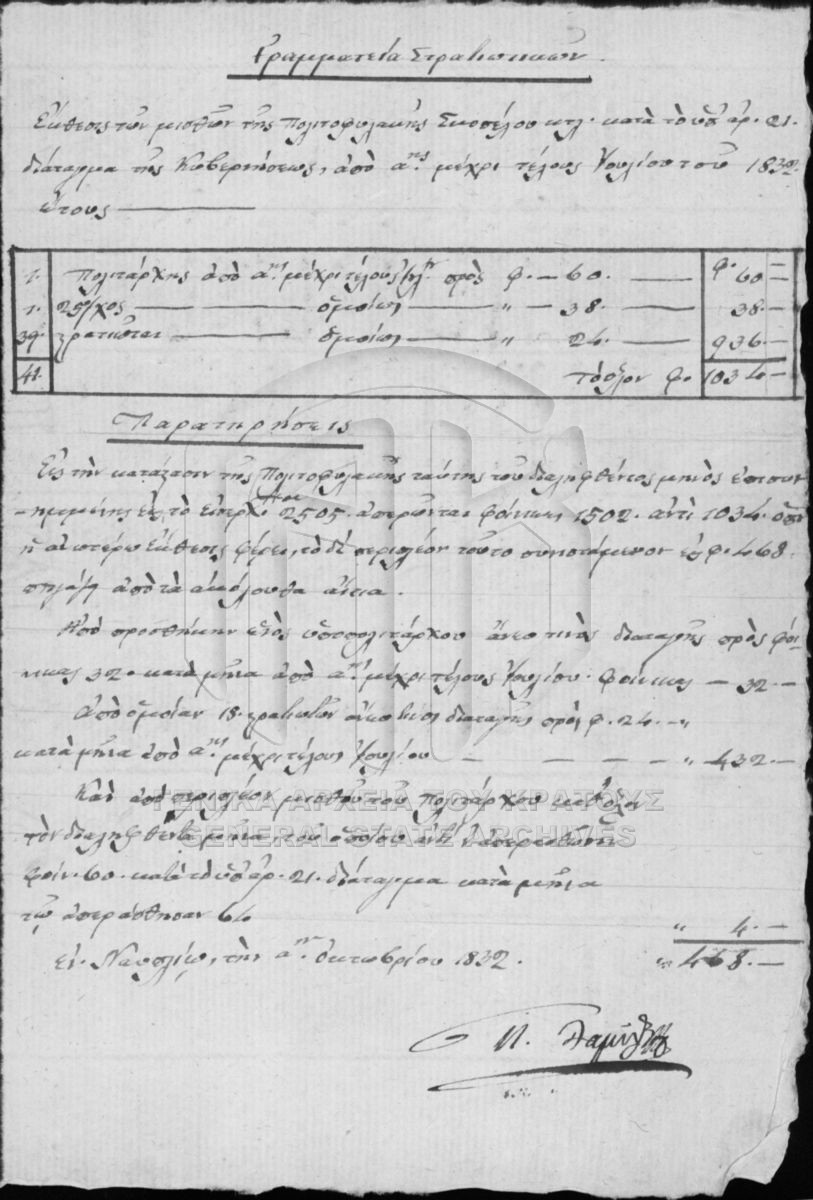 Γραμματεία Στρατιωτικών
Έκθεσις των μισθών της Πολιτοφυλακής Σκοπέλου κτλ. κατά το υπ' αρ. 21.
διάταγμα της Κυβερνήσεως, από α.ης μέχρι τέλους Ιουλίου του 1832
έτους
1. Πολιτάρχης από α.ης μέχρι τέλους Ιουλ. προς φ. — 60. — φ. 60 —
1. 25άρχος — ομοίως — " — 38. — 38. —
39. στρατιώται — ομοίως — " 24. — 936. —
41. το όλον φ. 1034 —
Παρατηρήσεις
Εις την κατάστασιν της Πολιτοφυλακής ταύτης του διαληφθέντος μηνός επισυν-
-ημμένης εις το 2505. επερώνται φοίνικες 1502. αντί 1034. οπού
η ανωτέρω Έκθεσις φέρει, το δε περιπλέον τούτο συνιστάμενον εις φ. 468.
πηγάζη από τα ακόλουθα αίτια.
Από προσθήκην ενός υποπολιτάρχου άνευ τινός διαταγής προς φοί-
νικας 32. κατά μήνα από α.ης μέχρι τέλους Ιουλίου. φοίνικας — 32. —
Από ομοίαν 18. στρατιωτών άνευ τινος διαταγής προς φ. 24. — "
κατά μήνα από α.ης μέχρι τέλους Ιουλίου — — — — " 432. —
Και από περιπλέον μισθού του Πολιτάρχου καθ' όλον
τον διαληφθέντα μήνα του οποίου αντί
φοίν. 60. κατά το υπ' αρ. 21. διάταγμα κατά μήνα
τω επεράσθησαν 64 " 4. —
Εν Ναυπλίω, την α.ην Οκτωβρίου 1832. " 468. —
ΓΕΝΙΚΑ ΑΡΧΕΙΑ ΤΟΥ ΚΡΑΤΟΥΣ
GENERAL STATE ARCHIVES